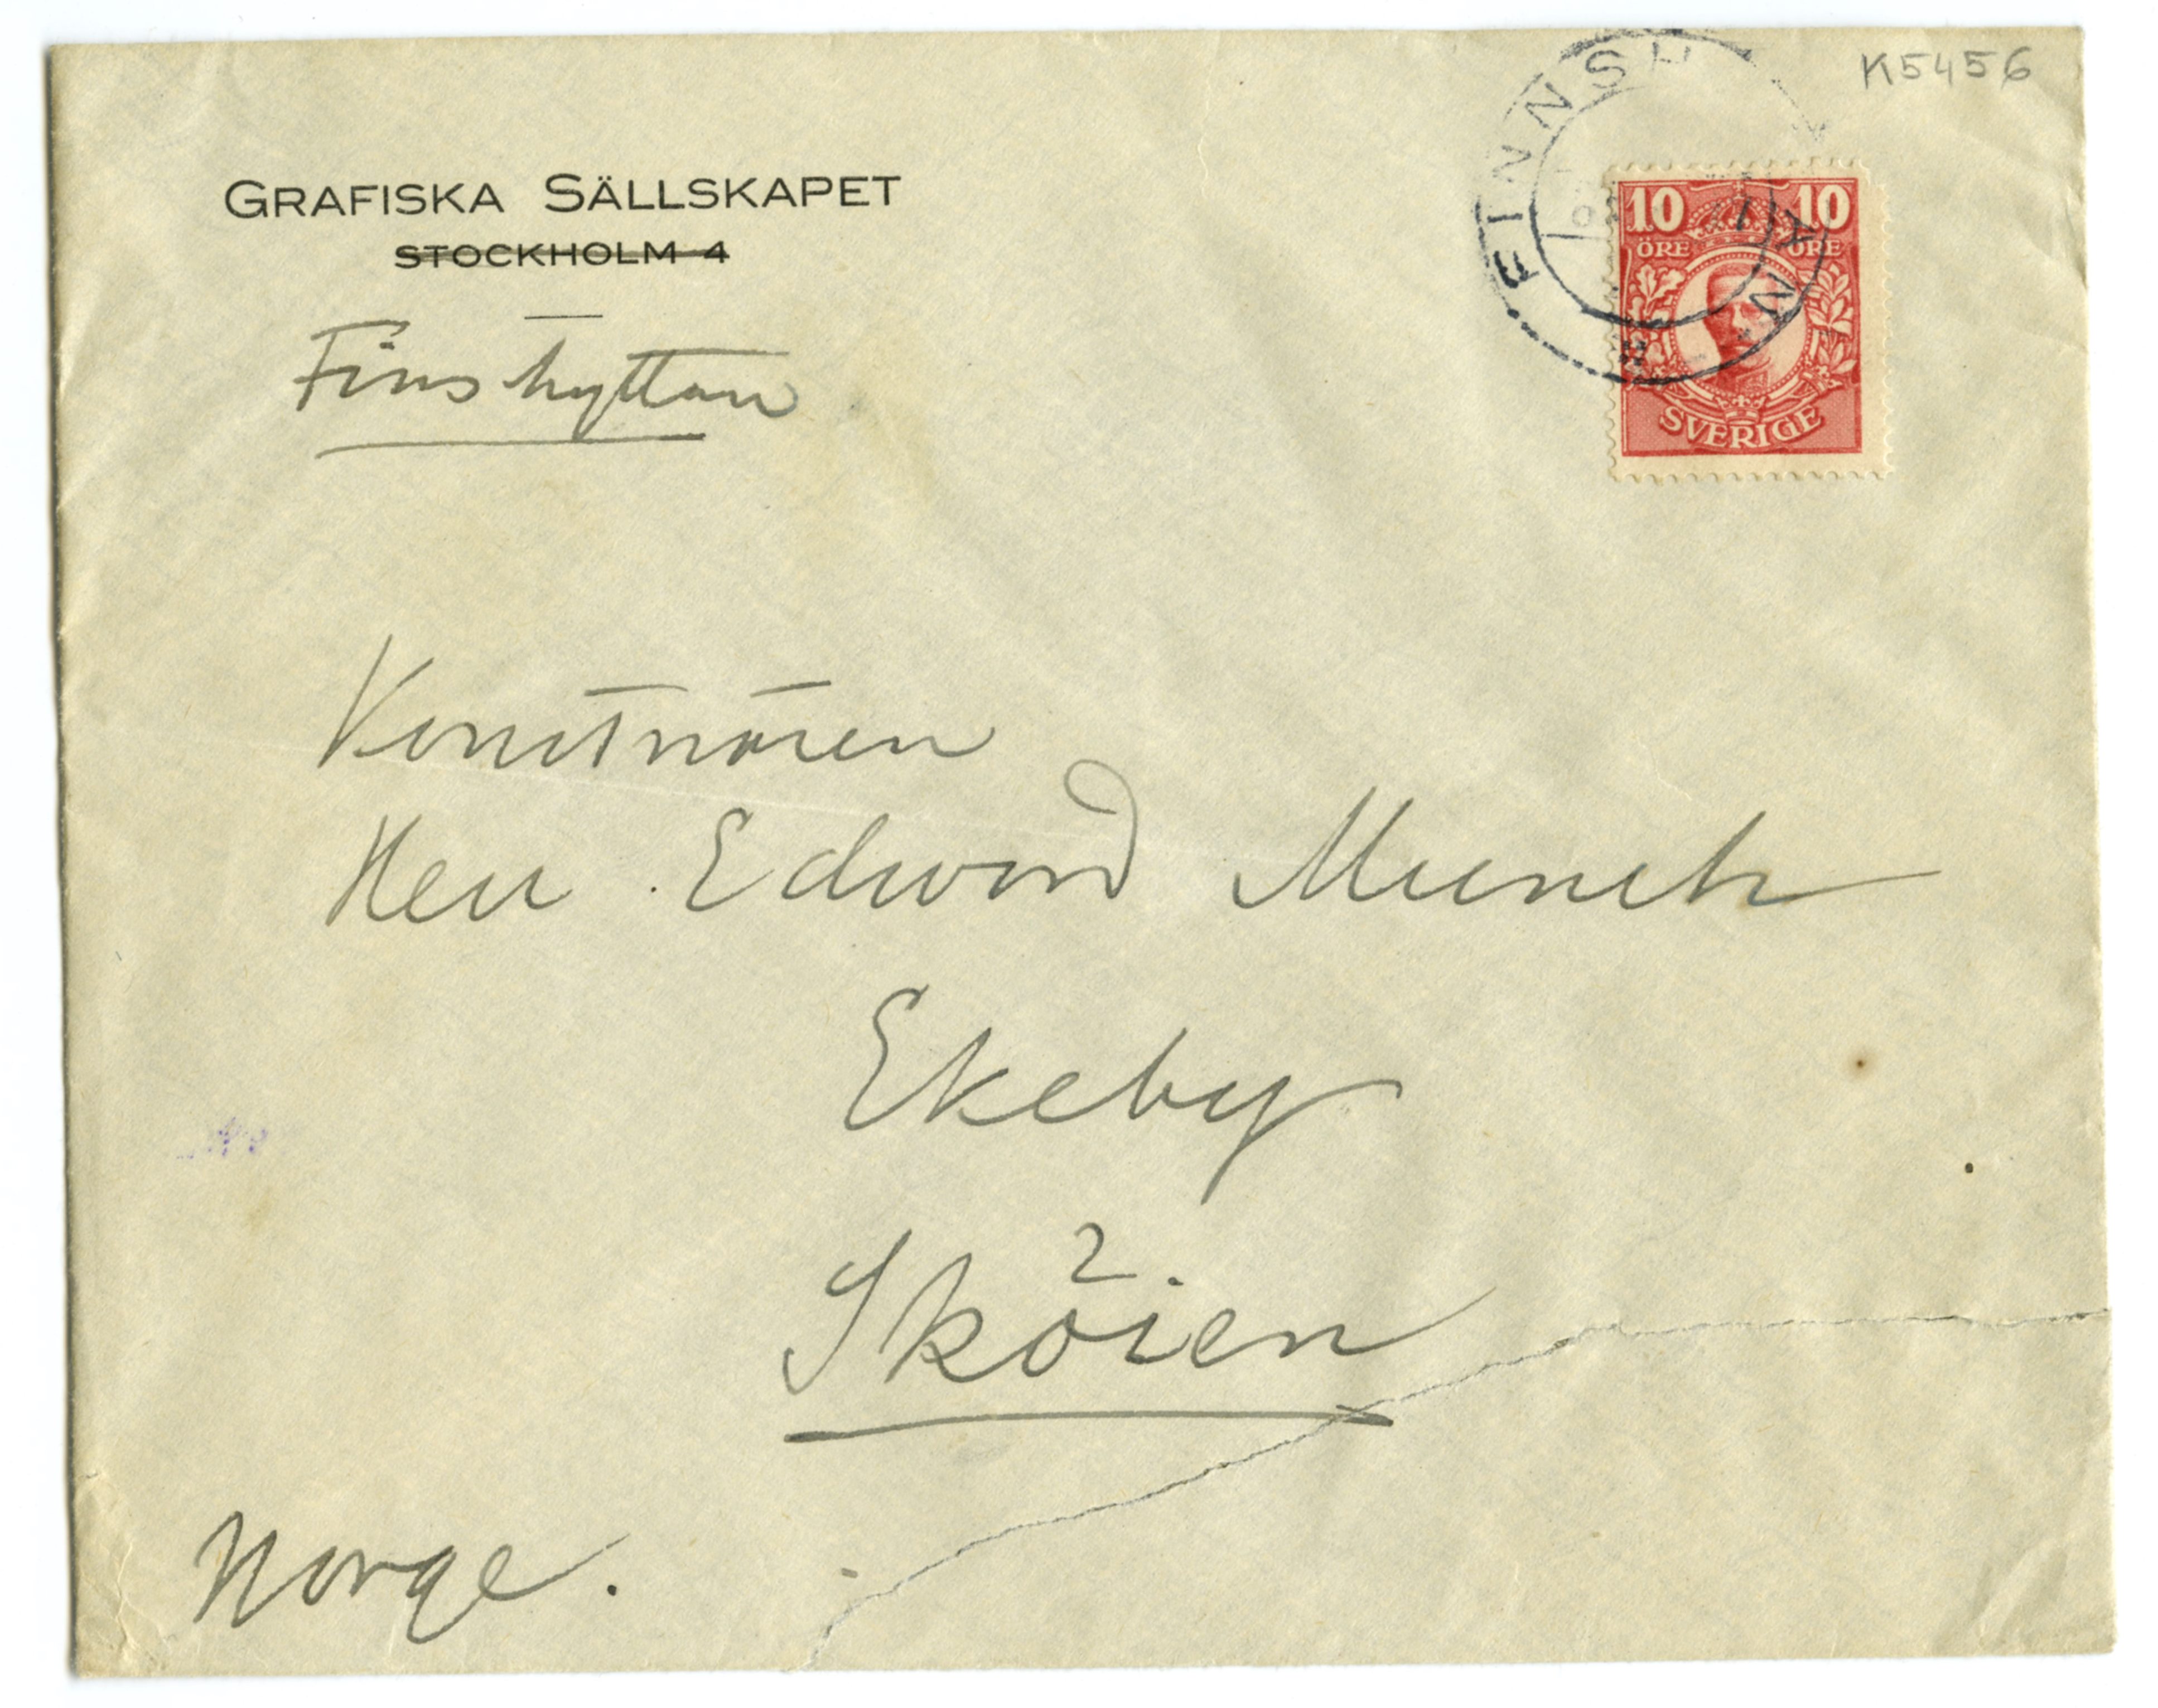 K5456
GRAFISKA SÄLLSKAPET
STOCKHOLM 4
Finshyttan
FINNSH AN
10 10
ÖRE ÖRE
SVERIGE
Konstnären
Herr Edward Munch
Ekeby
Sköien
Norge.